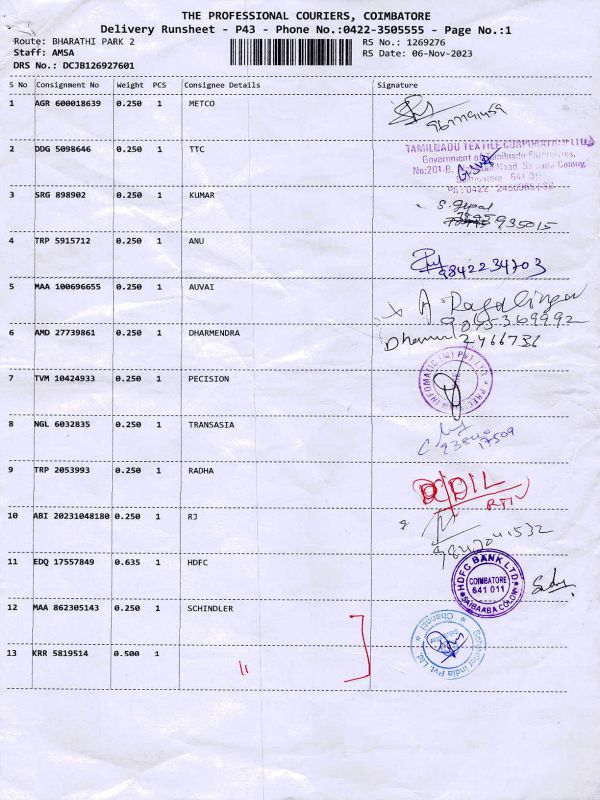 THE PROFESSIONAL COURIERS, COIMBATORE
Delivery Runsheet - P43 - Phone No.:0422-3505555 - Page No.:1
Route: BHARATHI PARK 2 RS No.: 1269276
Staff: AMSA RS Date: 06-Nov-2023
DRS No.: DCJB126927601
S No Consignment No Weight PCS Consignee Details Signature
1 AGR 600018639 0.250 1 METCO
2 DDG 5098646 0.250 1 TTC
TAMILNADU TEXTILE CORPORATION LTD
Government of Tamilnadu Enterprises,
3 SRG 898902 0.250 1 KUMAR
S. gopal
935015
4 TRP 5915712 0.250 1 ANU
9842234703
5 MAA 100696655 0.250 1 AUVAI
6 AMD 27739861 0.250 1 DHARMENDRA
2466736
7 TVM 10424933 0.250 1 PECISION
8 NGL 6032835 0.250 1 TRANSASIA
9 TRP 2053993 0.250 1 RADHA
RTN
10 ABI 20231048180 0.250 1 RJ
11 EDQ 17557849 0.635 1 HDFC
HDFC BANK LTD
COIMBATORE
641 011
SAIBAABA COLONY
12 MAA 862305143 0.250 1 SCHINDLER
Schindler India Pvt. Ltd.
13 KRR 5819514 0.500 1